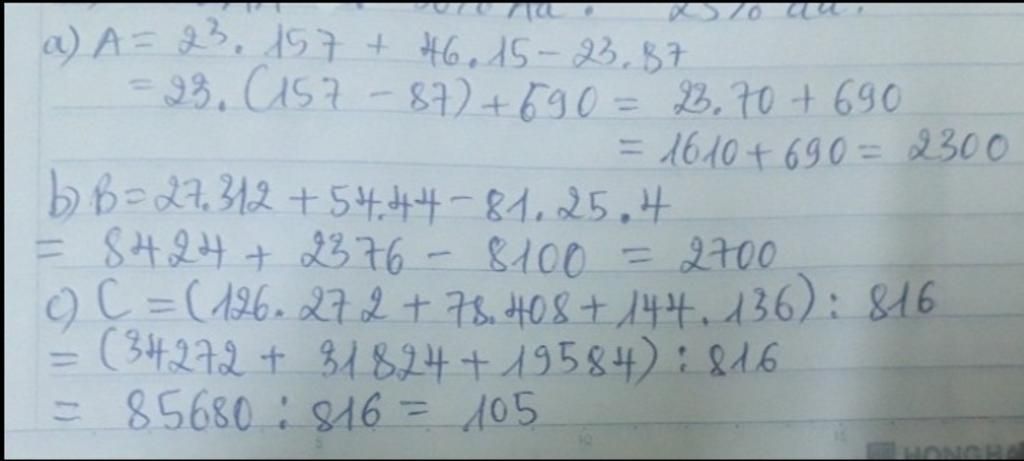 a) A = 23. 157 + 46.15 - 23.87
= 23. (157 - 87) + 690 = 23.70 + 690
= 1610 + 690 = 2300
b) B = 27.312 + 54.44 - 81.25.4
= 8424 + 2376 - 8100 = 2700
c) C = (126.272 + 78.408 + 144.136) : 816
= (34272 + 31824 + 19584) : 816
= 85680 : 816 = 105